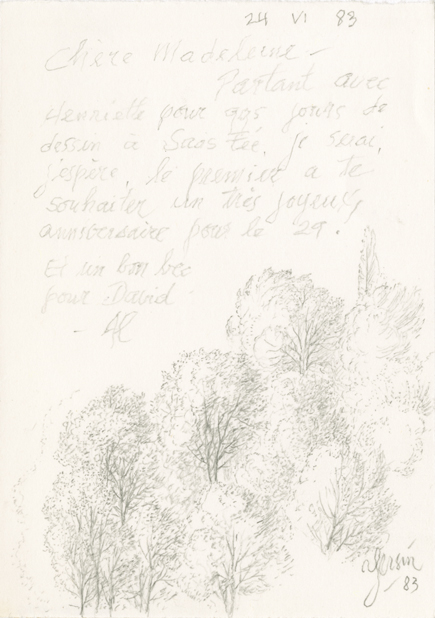 24 VI 83
Chère Madeleine -
Partant avec
Henriette pour qqs jours de
dessin à Saas Fée, je serai,
j'espère, le premier a te
souhaiter un très joyeux
anniversaire pour le 29.
Et un bon bec
pour David
83